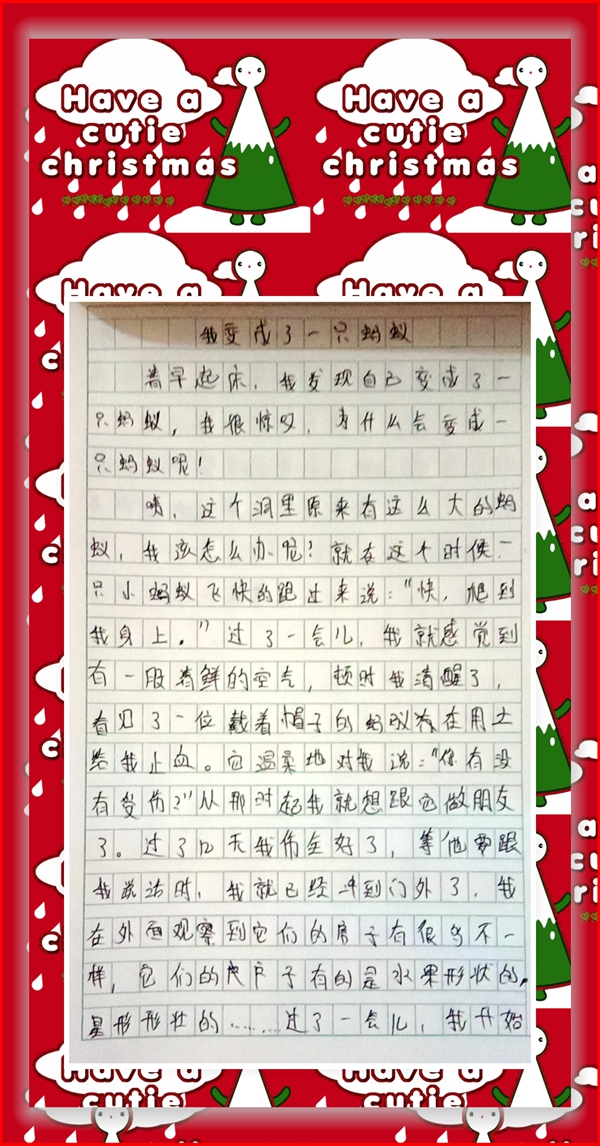 Have a
cutie
christmas
Have a
cutie
christmas
Have a
Have a
我变成了一只蚂蚁
着早起床，我发现自己变成了一
只蚂蚁，我很惊叹，为什么会变成一
只蚂蚁呢！
啧，这个洞里原来有这么大的蚂
蚁，我该怎么办呢？就在这个时候一
只小蚂蚁飞快的跑过来说：“快，爬到
我身上。”过了一会儿，我就感觉到
有一股着鲜的空气，顿时我清醒了，
看见了一位戴着帽子的蚂蚁存在用土
给我止血。它温柔地对我说：“你有没
有受伤？”从那时起我就想跟它做朋友
了。过了几天我伤全好了，等他要跟
我说话时，我就已经冲到门外了，我
在外面观察到它们的房子有很多不一
样，它们的房子有的是水果形状的，
星形形状的……过了一会儿，我开始
Have a
cutie
Have a
cutie